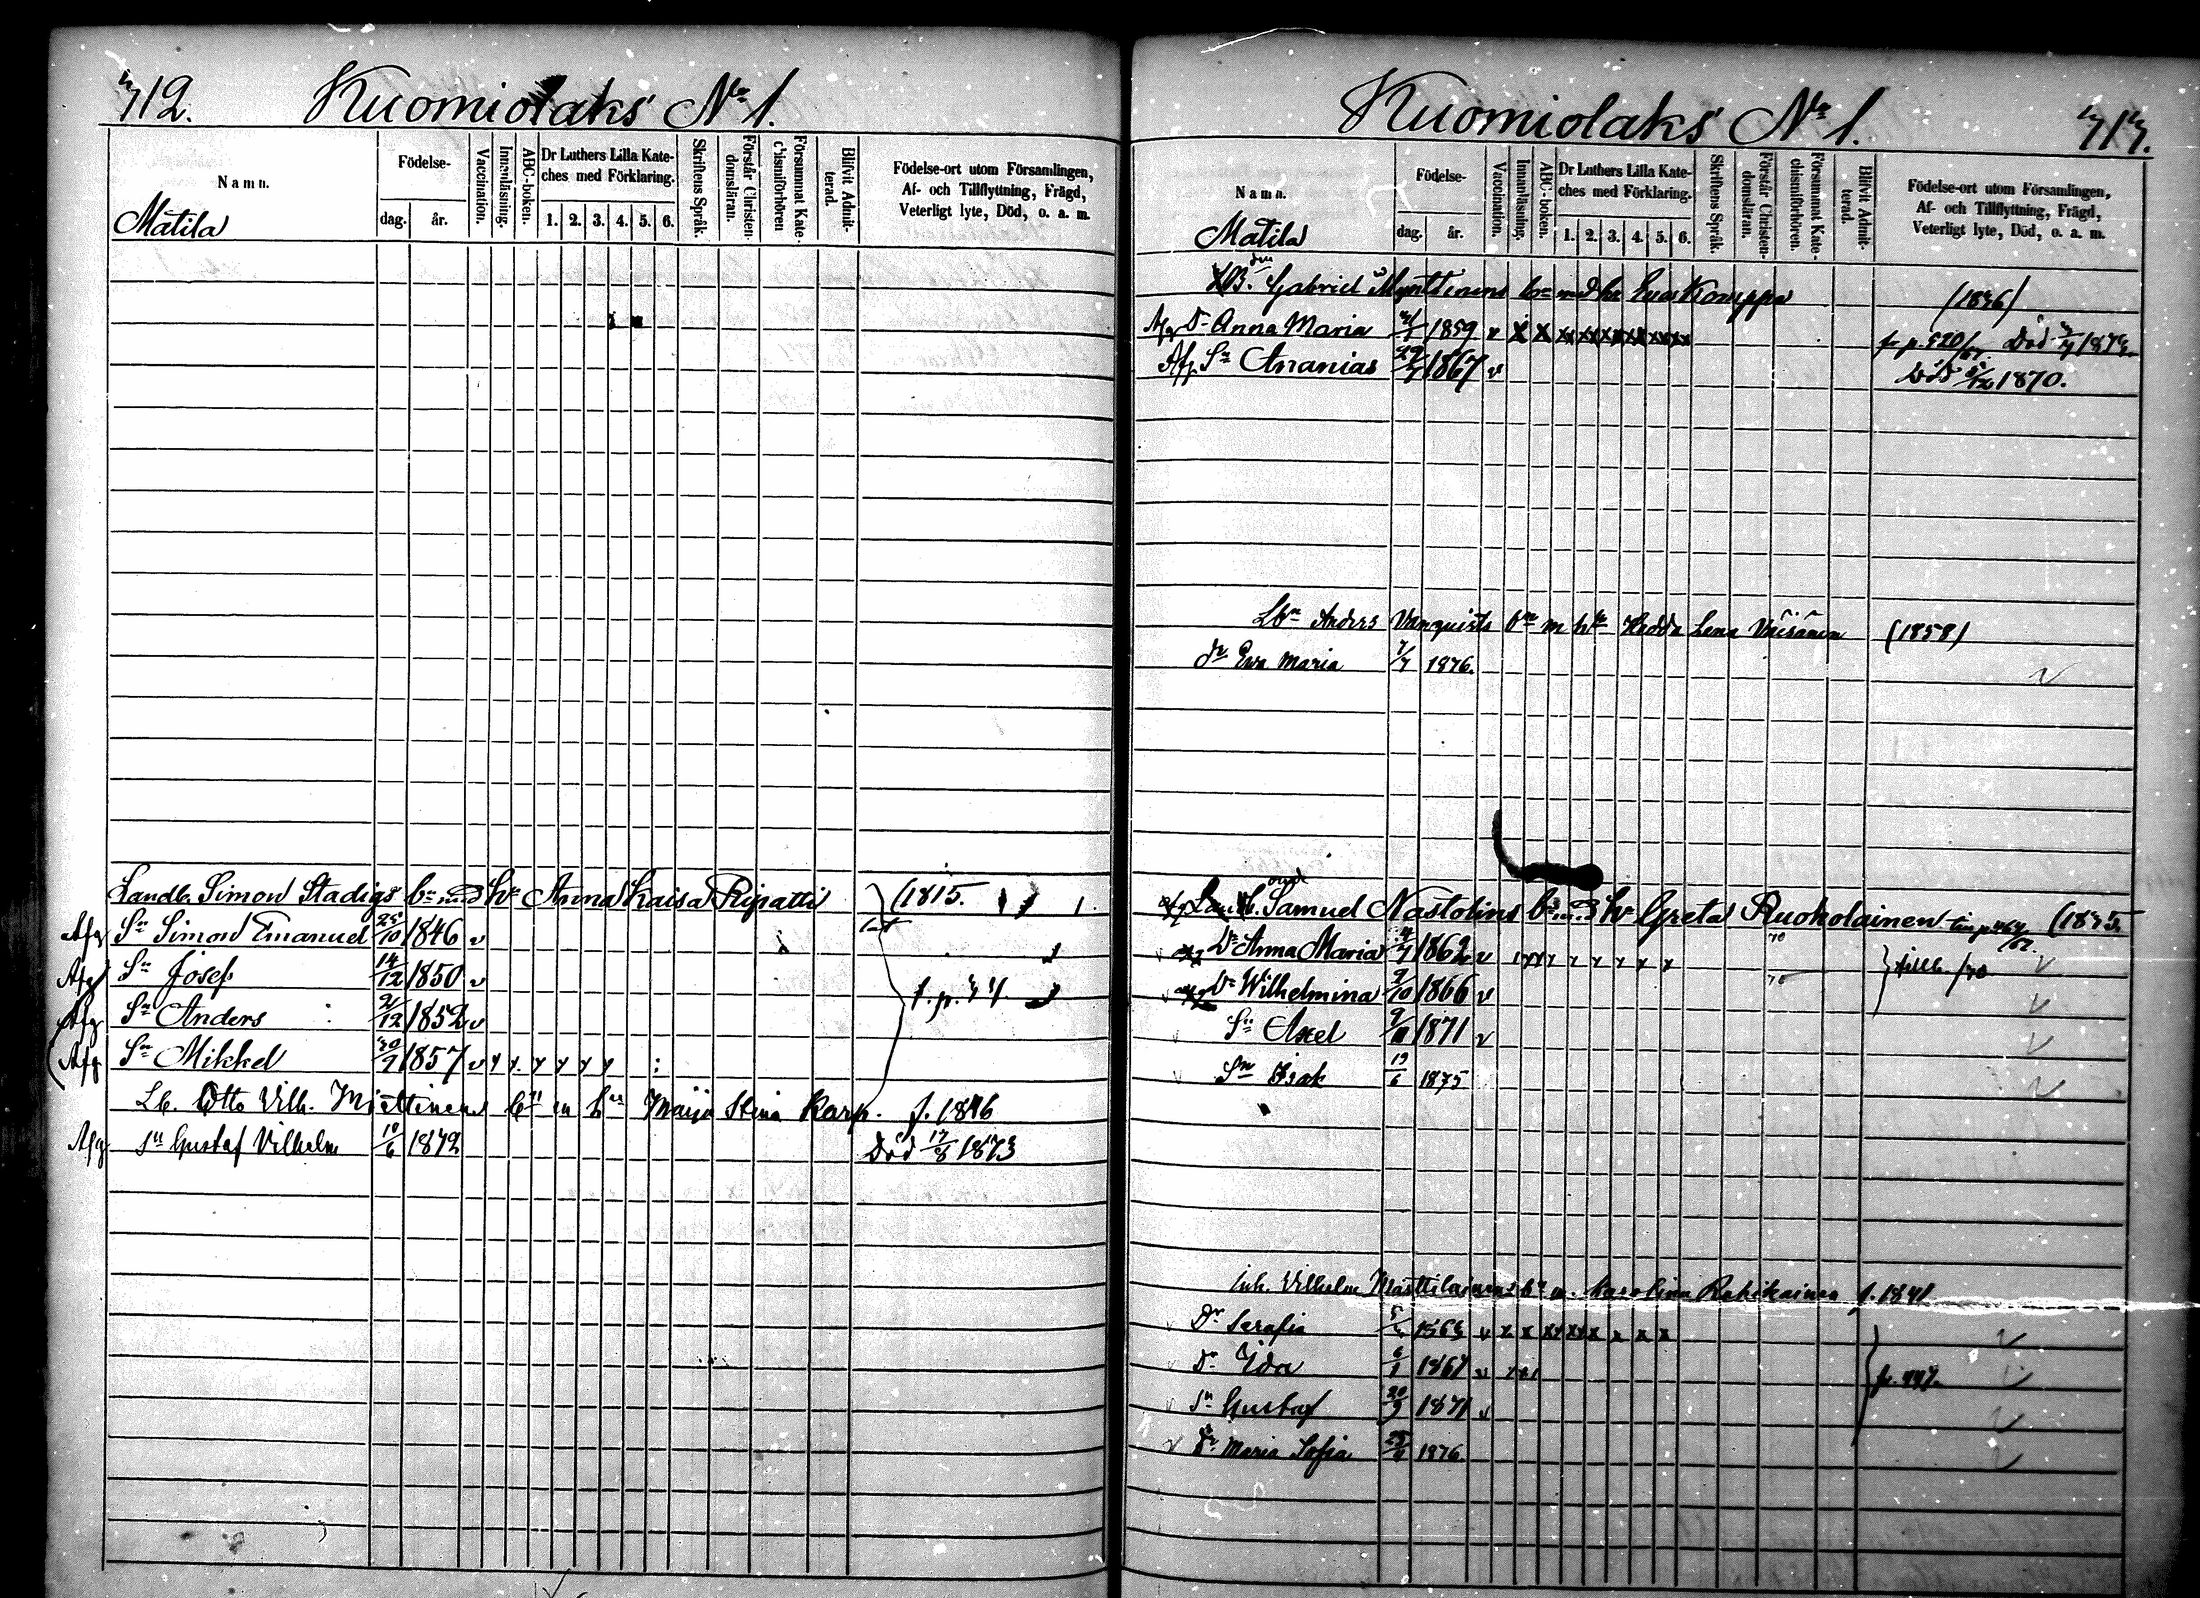 712. Kuomiolaks No 1.
Namn.
Födelse-
dag. år.
Vaccination.
Innanläsning.
ABC-boken.
Dr Luthers Lilla Kate-
ches med Förklaring.
1. 2. 3. 4. 5. 6.
Skriftens Språk.
Förstår Christen-
domsläran.
Försummat Kate-
chismiförhören
Blifvit Admit-
terad.
Födelse-ort utom Församlingen,
Af- och Tillflyttning, Frägd,
Veterligt lyte, Död, o. a. m.
Matila
Landb. Simon Stadigs bn med hu Anna Kaisa Ripatti (1815.
Afg Sn Simon Emanuel 25/10 1846 v
Afg Sn Josef 14/12 1850 v
Afg Sn Anders 21/12 1852 v
Afg Sn Mikkel 30/9 1857 v
Lb. Otto Vilh. Miettinens bn m hu Maija Stina Karp. f. 1846
Afg Sn Gustaf Vilhelm 10/6 1872 Död 17/8 1873
Kuomiolaks No 1. 713.
Namn.
Födelse-
dag. år.
Vaccination.
Innanläsning.
ABC-boken.
Dr Luthers Lilla Kate-
ches med Förklaring.
1. 2. 3. 4. 5. 6.
Skriftens Språk.
Förstår Christen-
domsläran.
Försummat Kate-
chismiförhören.
Blifvit Admit-
terad.
Födelse-ort utom Församlingen,
Af- och Tillflyttning, Frägd,
Veterligt lyte, Död, o. a. m.
Matila
Gabriel Mynttinens bn med hu Eva Komppa (1836)
Afg Dr Anna Maria 1859 v x x Död 1873
Afg Sn Ananias 29/7 1867 v Död 1870.
Lbn Anders Vanquists bn m hu Hedda Lena Väisänen (1858)
dr Eva Maria 7/7 1876.
Samuel Nastolins bn med hu Greta Ruokolainen (1835
Dr Anna Maria 4/7 1862 v
Dr Wilhelmina 2/10 1866 v
Sn Axel 1871 v
Sn Isak 19/6 1875
Inh. Vilhelm Masttilainens bn m. Karolina Rahikainen f. 1841
Dr Serafia 1863 v
Dr Ida 6/1 1867 v
Sn Gustaf 20/9 1871 v
Dr Maria Sofia 1876.